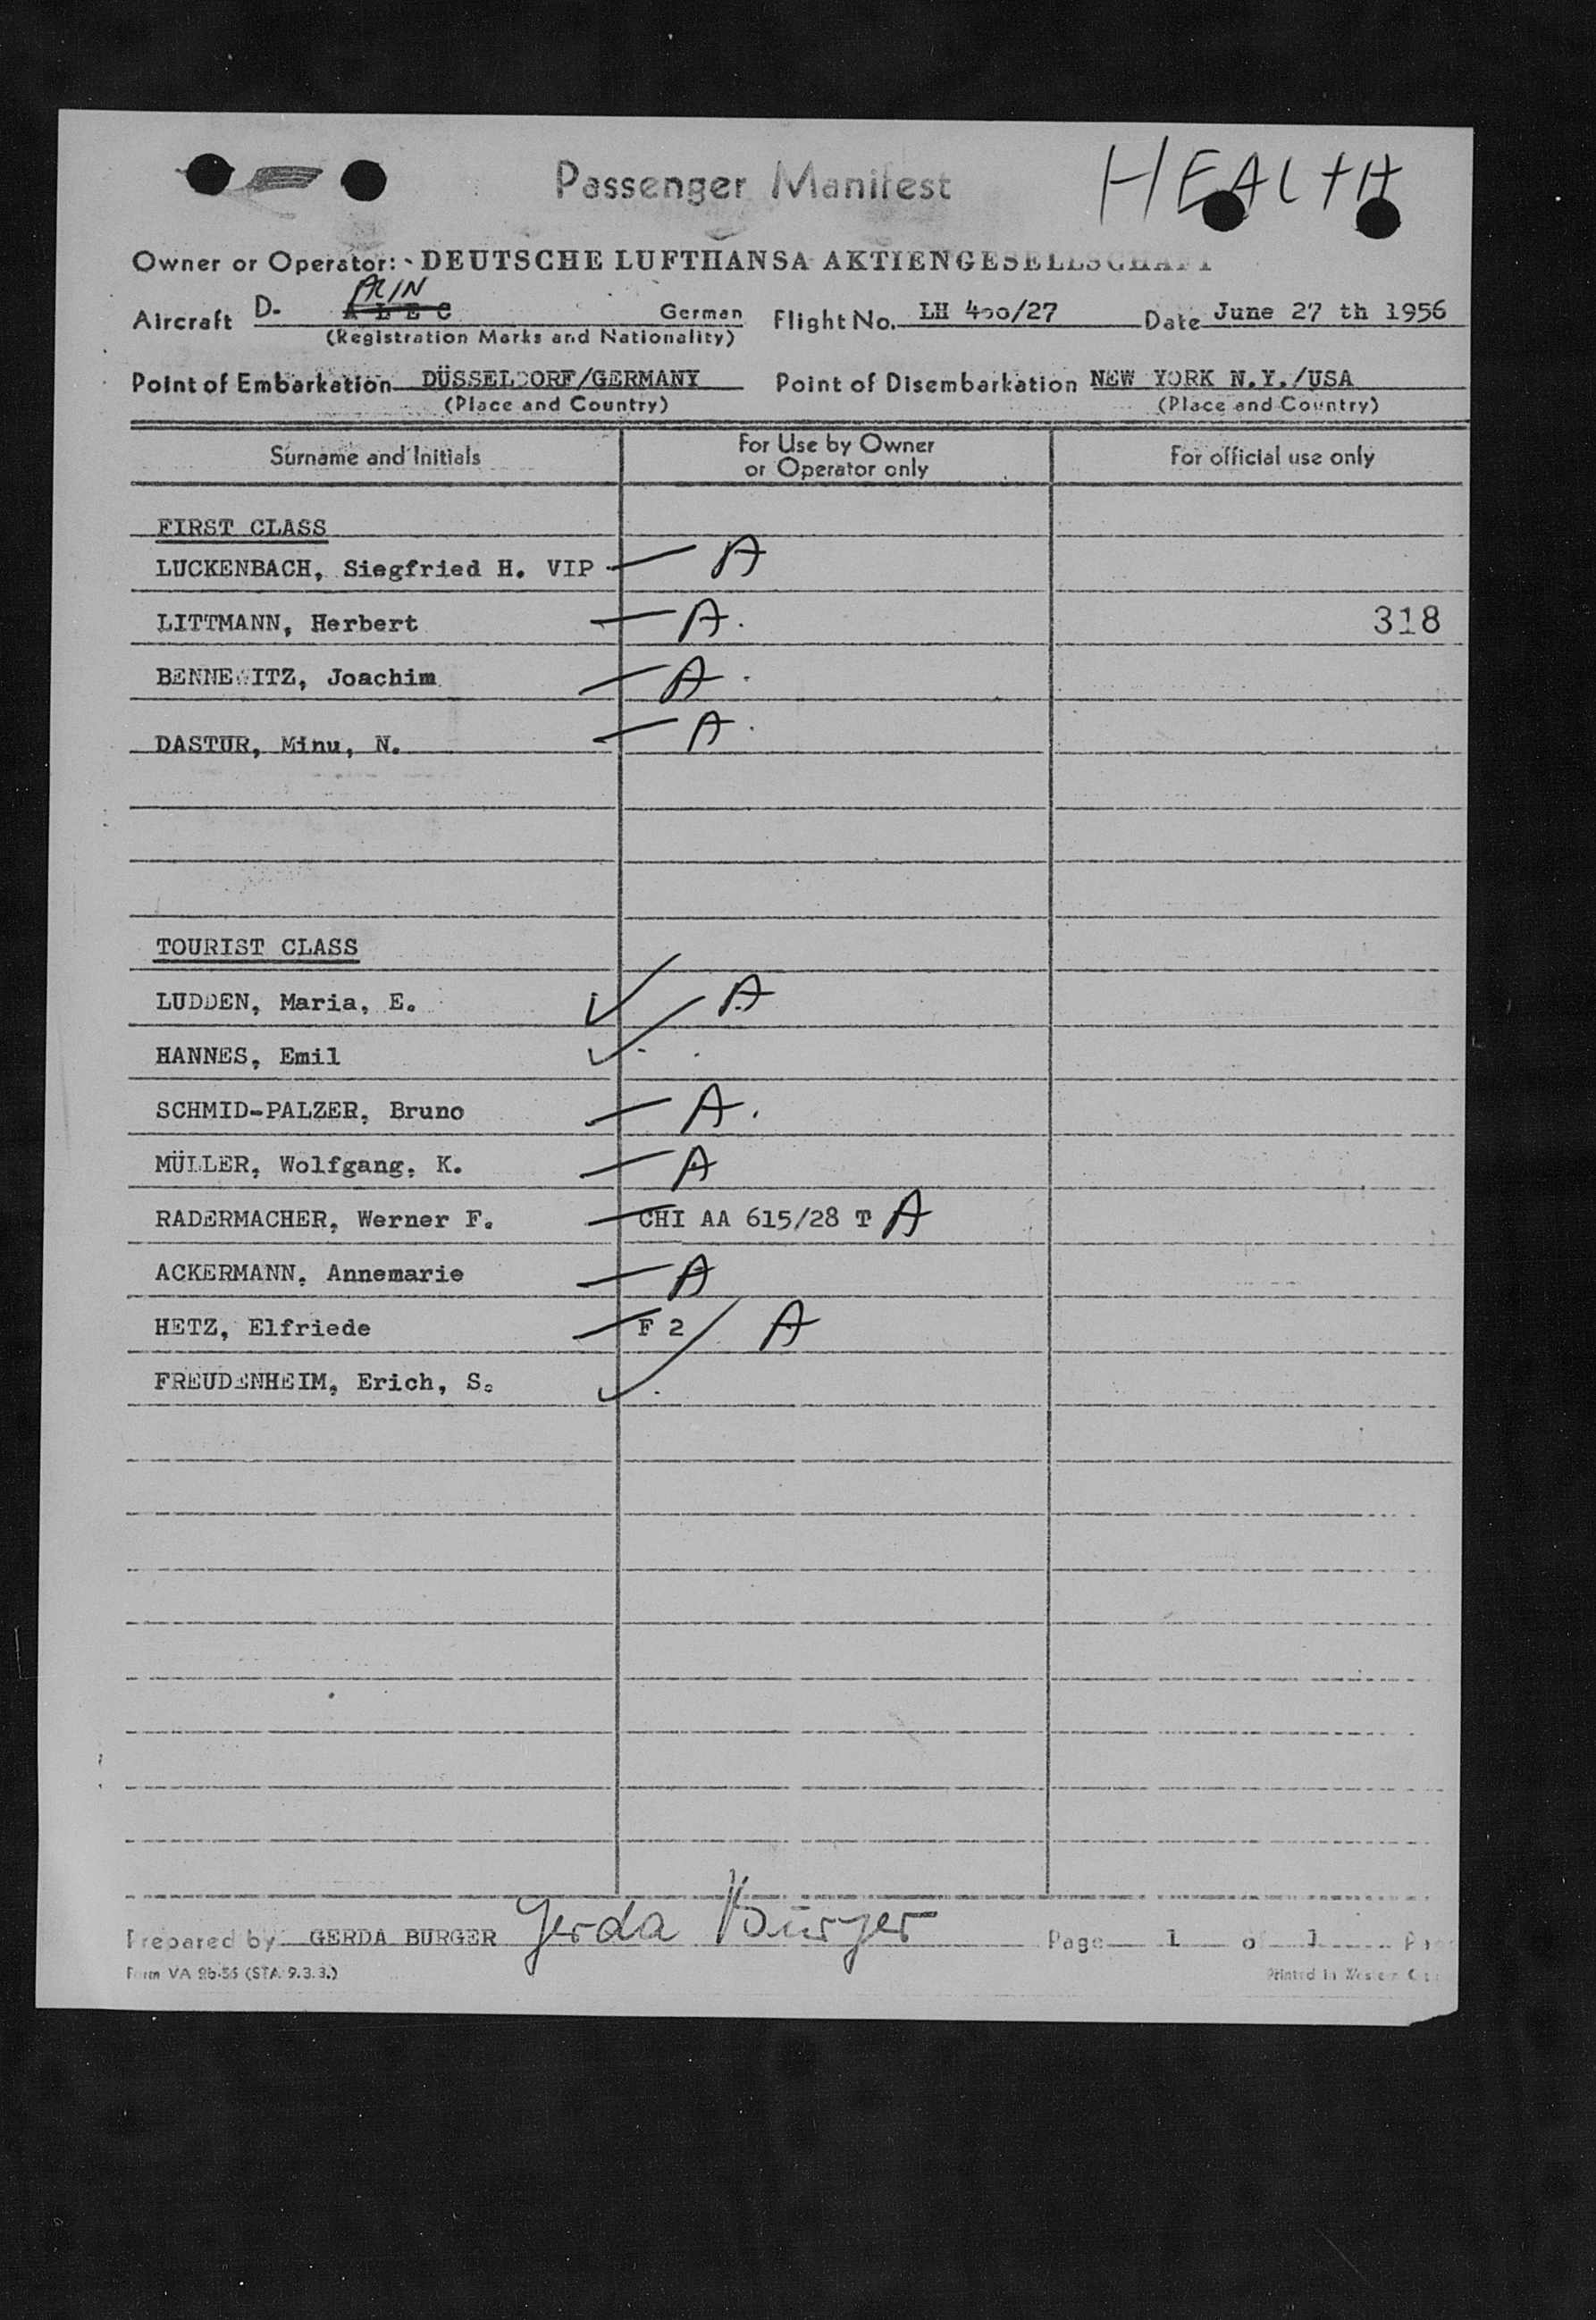 Passenger Manifest
HEALTH
Owner or Operator: DEUTSCHE LUFTHANSA AKTIENGESELLSCHAFT
ALIN
Aircraft D- ALEC German Flight No. LH 400/27 Date June 27 th 1956
(Registration Marks and Nationality)
Point of Embarkation DÜSSELDORF/GERMANY Point of Disembarkation NEW YORK N.Y./USA
(Place and Country) (Place and Country)
Surname and Initials For Use by Owner or Operator only For official use only
FIRST CLASS
LUCKENBACH, Siegfried H. VIP A
LITTMANN, Herbert A. 318
BENNEWITZ, Joachim A.
DASTUR, Minu, N. A.
TOURIST CLASS
LUDDEN, Maria, E. A
HANNES, Emil
SCHMID-PALZER, Bruno A.
MÜLLER, Wolfgang, K. A
RADERMACHER, Werner F. CHI AA 615/28 T A
ACKERMANN, Annemarie A
HETZ, Elfriede F 2 A
FREUDENHEIM, Erich, S.
Prepared by GERDA BURGER Gerda Burger Page 1 of 1
Form VA 2b-56 (STA 9.3.3.) Printed in